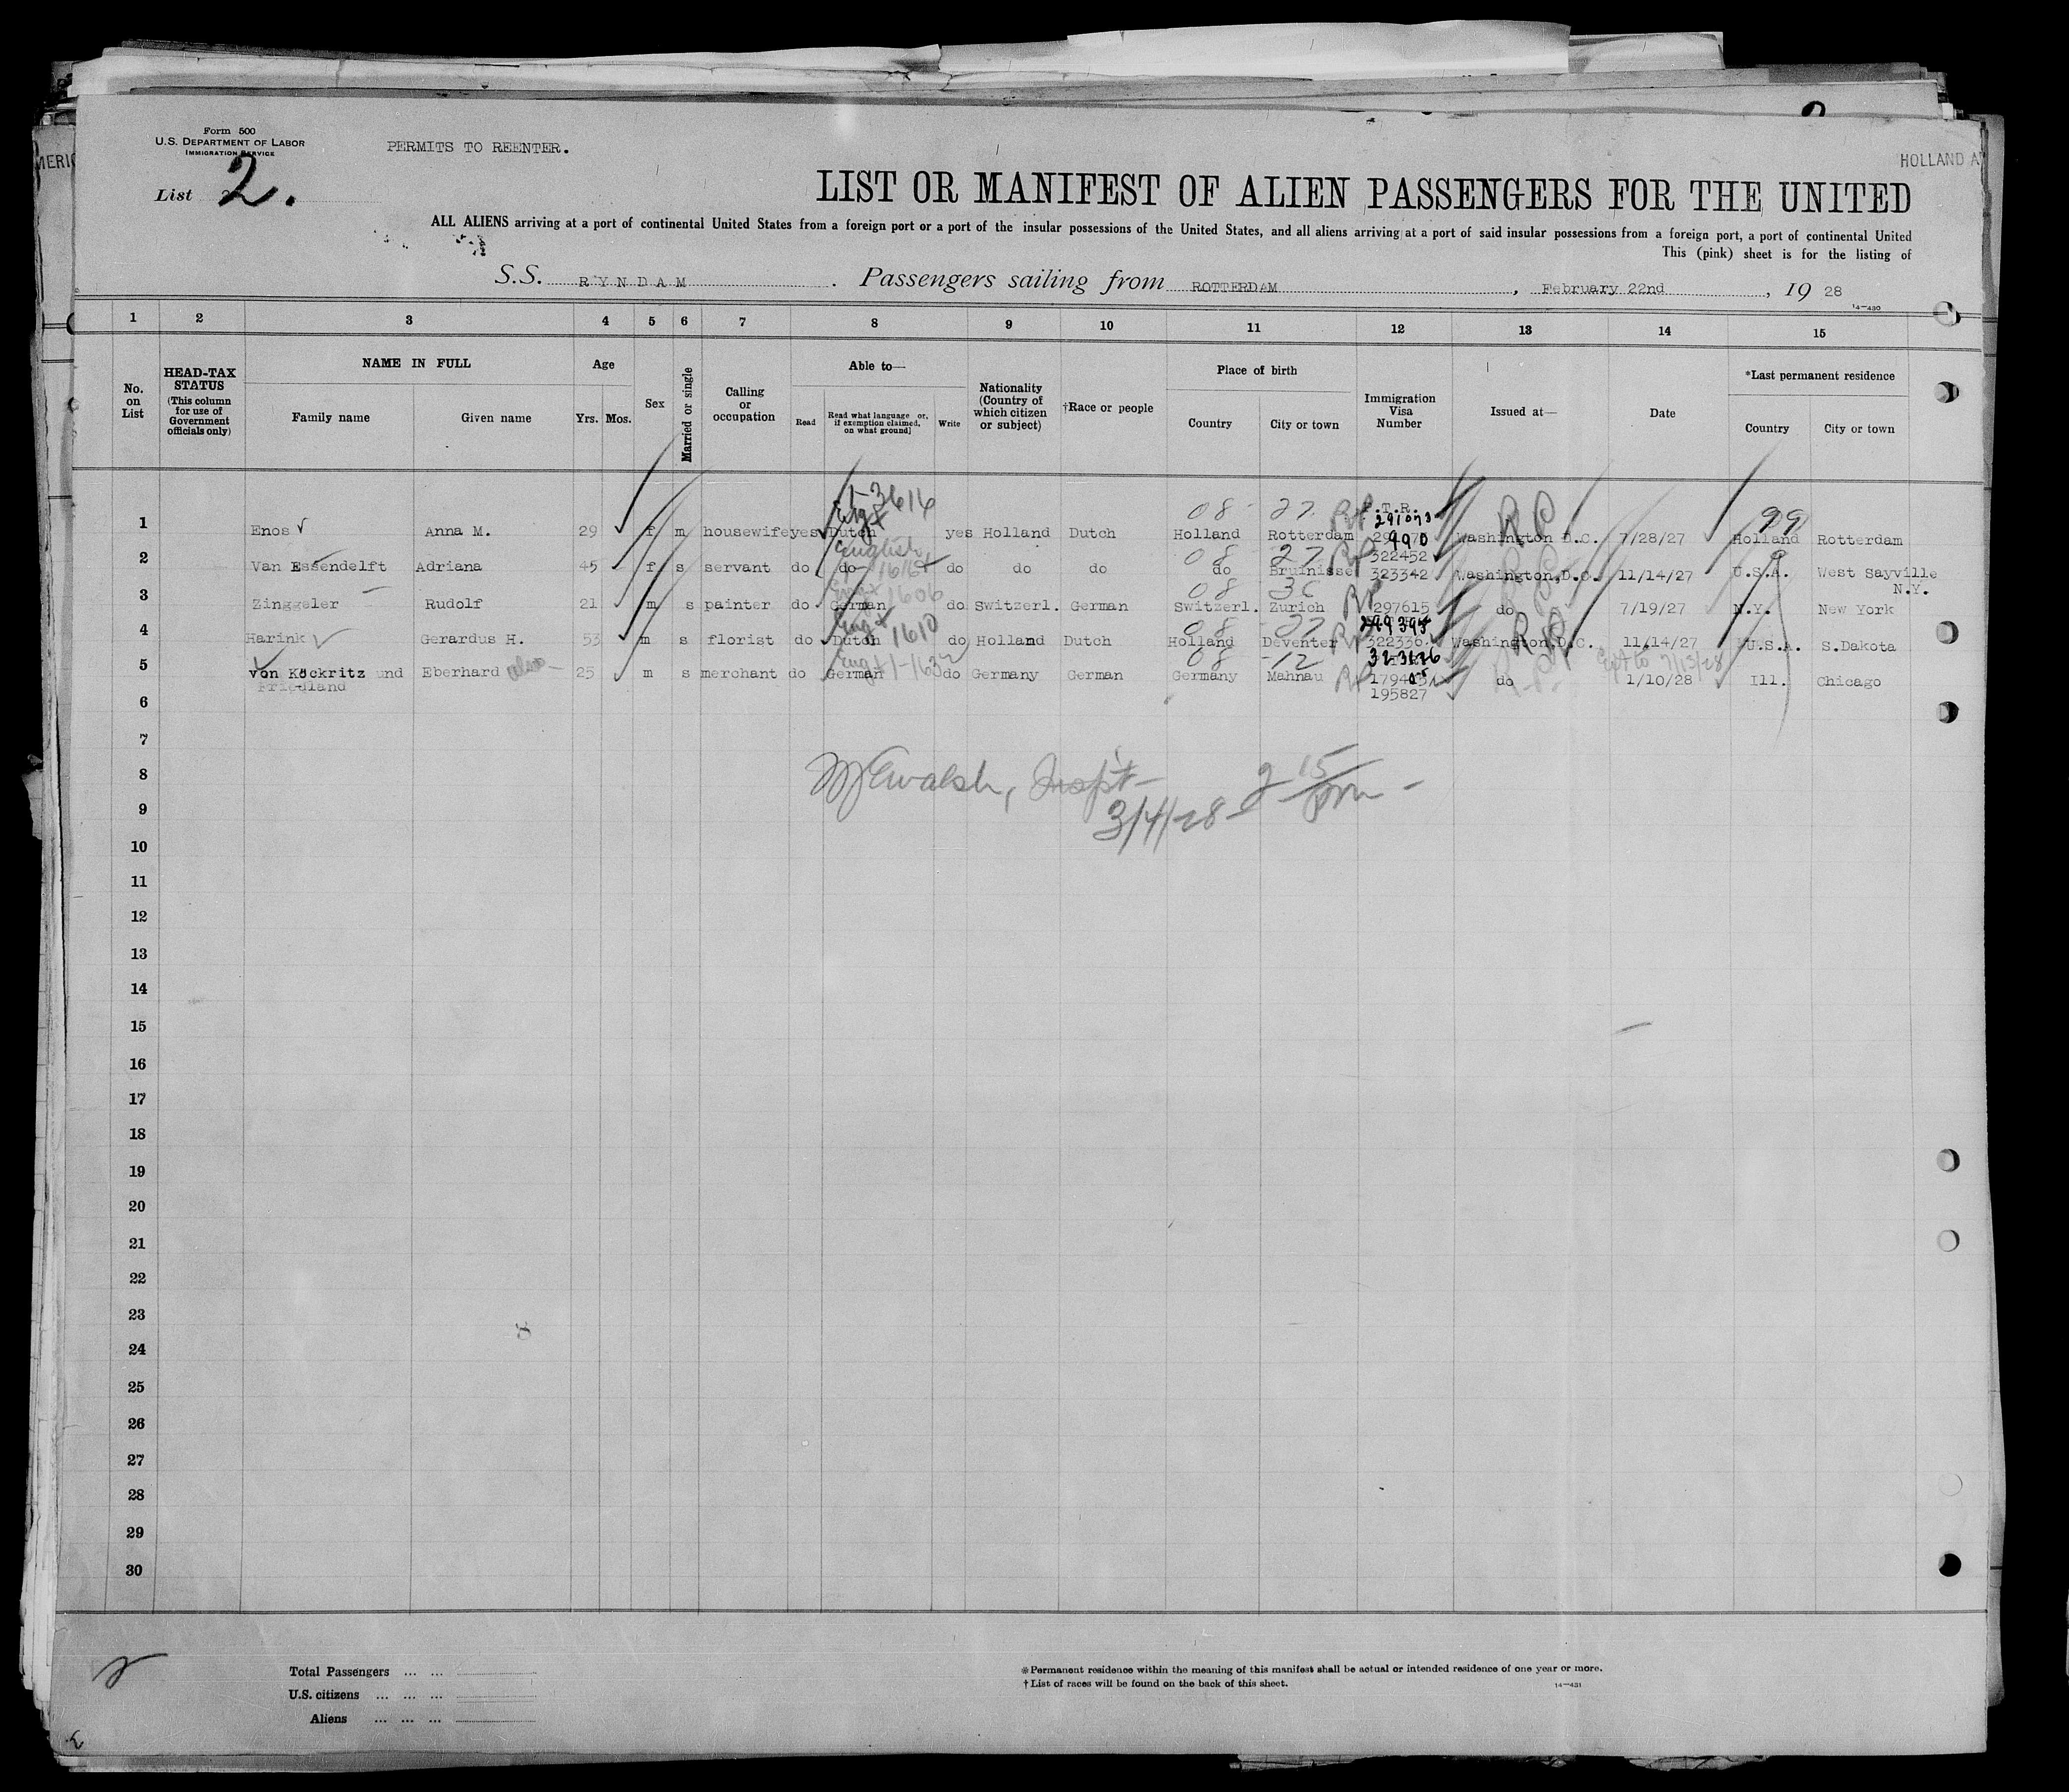 MERIC
HOLLAND A
Form 500
U.S. DEPARTMENT OF LABOR
IMMIGRATION SERVICE
PERMITS TO REENTER.
List 2.
LIST OR MANIFEST OF ALIEN PASSENGERS FOR THE UNITED
ALL ALIENS arriving at a port of continental United States from a foreign port or a port of the insular possessions of the United States, and all aliens arriving at a port of said insular possessions from a foreign port, a port of continental United
This (pink) sheet is for the listing of
S.S. RYNDAM. Passengers sailing from ROTTERDAM, February 22nd, 19 28
14-430
1 2 3 4 5 6 7 8 9 10 11 12 13 14 15
No. on List
HEAD-TAX STATUS (This column for use of Government officials only)
NAME IN FULL
Family name Given name
Age
Yrs. Mos.
Sex
Married or single
Calling or occupation
Able to—
Read
Read what language or, if exemption claimed, on what ground]
Write
Nationality (Country of which citizen or subject)
†Race or people
Place of birth
Country City or town
Immigration Visa Number
Issued at—
Date
*Last permanent residence
Country City or town
1-3616
08 27 P.T.R. RP 99
1 Enos Anna M. 29 f m housewife yes Dutch yes Holland Dutch Holland Rotterdam Washington D.C. 7/28/27 Holland Rotterdam
English 08 27 322452 9
2 Van Essendelft Adriana 45 f s servant do do do do do do Bruinisse 323342 Washington,D.C. 11/14/27 U.S.A. West Sayville
N.Y.
1606 08 36
3 Zinggeler Rudolf 21 m s painter do German do Switzerl. German Switzerl. Zurich 297615 do 7/19/27 N.Y. New York
Eng 1610 08 27 RP
4 Harink Gerardus H. 53 m s florist do Dutch do Holland Dutch Holland Deventer 322336 Washington,D.C. 11/14/27 U.S.A. S.Dakota
Eng 08 12 323626 7/13/28
5 von Köckritz und Eberhard 25 m s merchant do German do Germany German Germany Mahnau do 1/10/28 Ill. Chicago
Friedland 195827
6
7
8 Walsh, Inspt- 2 15 pm -
9 3/4/28
10
11
12
13
14
15
16
17
18
19
20
21
22
23
24
25
26
27
28
29
30
Total Passengers ... ...
U.S. citizens ... ... ...
Aliens ... ... ...
*Permanent residence within the meaning of this manifest shall be actual or intended residence of one year or more.
†List of races will be found on the back of this sheet.
14-431